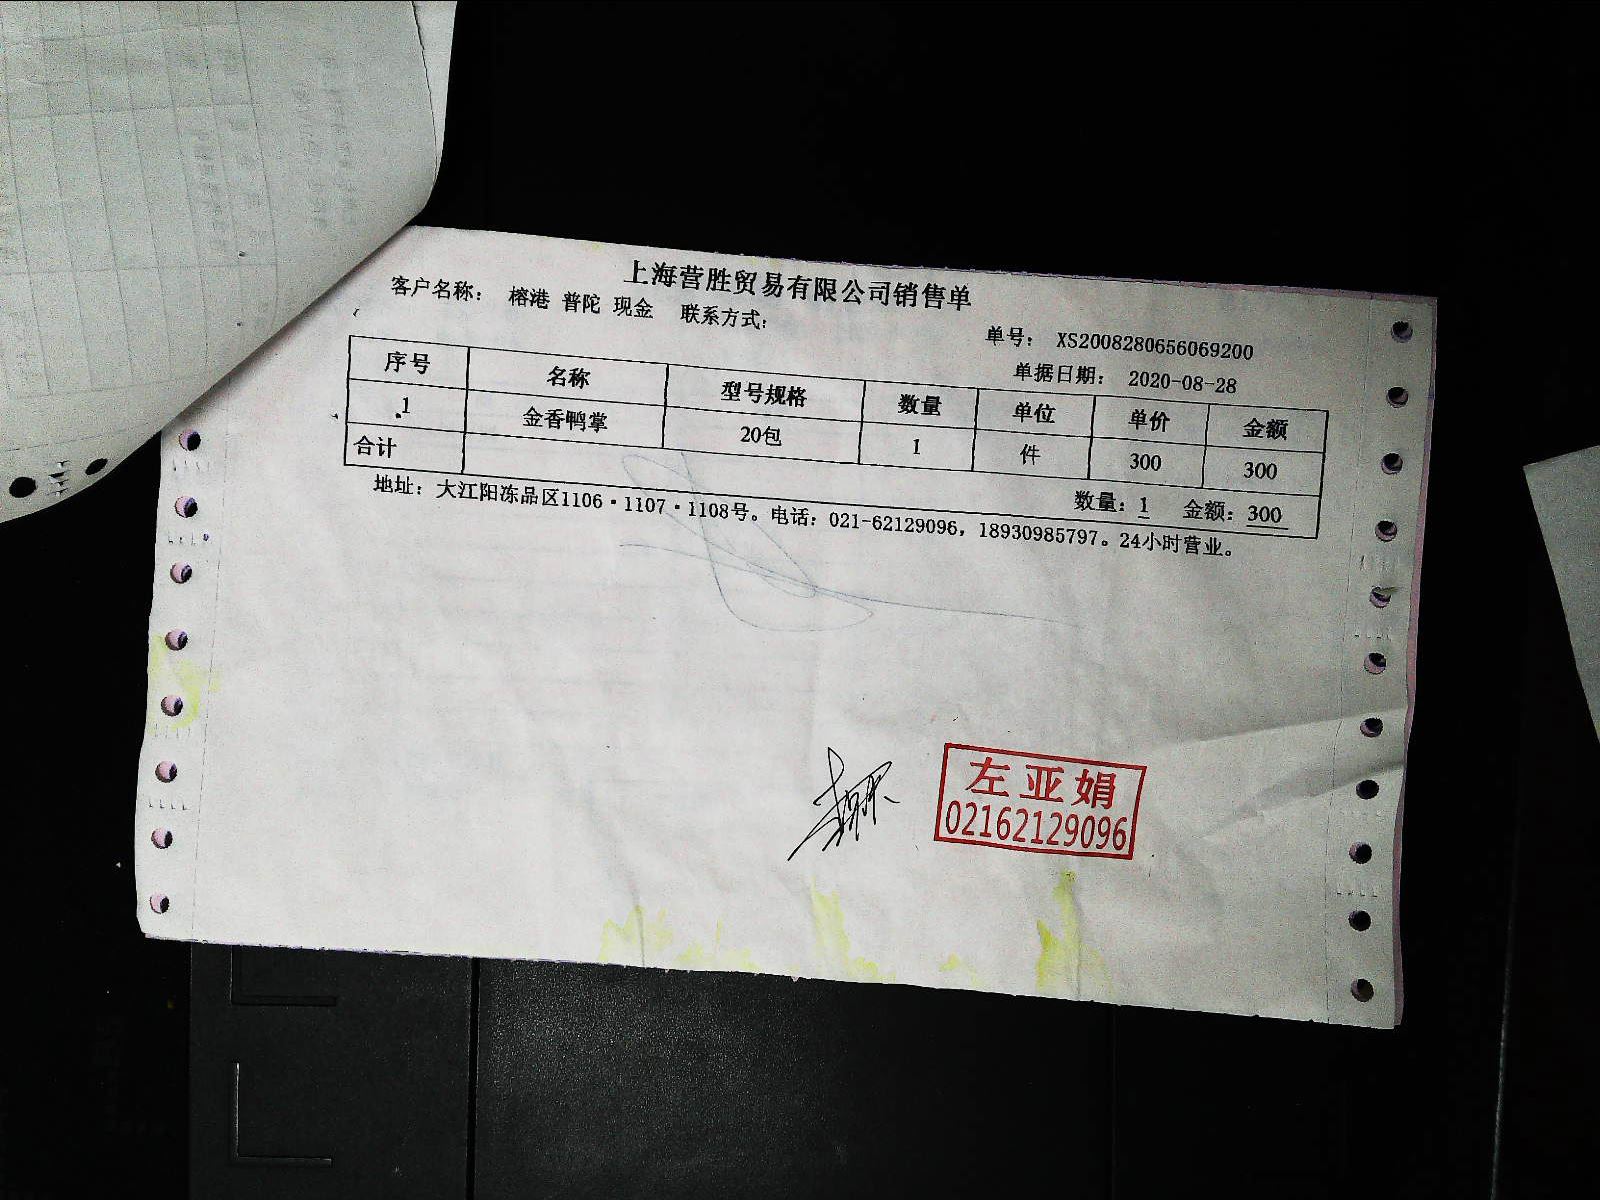 上海营胜贸易有限公司销售单
客户名称： 榕港 普陀 现金 联系方式：
单号： XS2008280656069200
单据日期： 2020-08-28
序号 名称 型号规格 数量 单位 单价 金额
1 金香鸭掌 20包 1 件 300 300
合计 数量：1 金额：300
地址：大江阳冻品区1106·1107·1108号。电话：021-62129096，18930985797。24小时营业。
左亚娟
02162129096